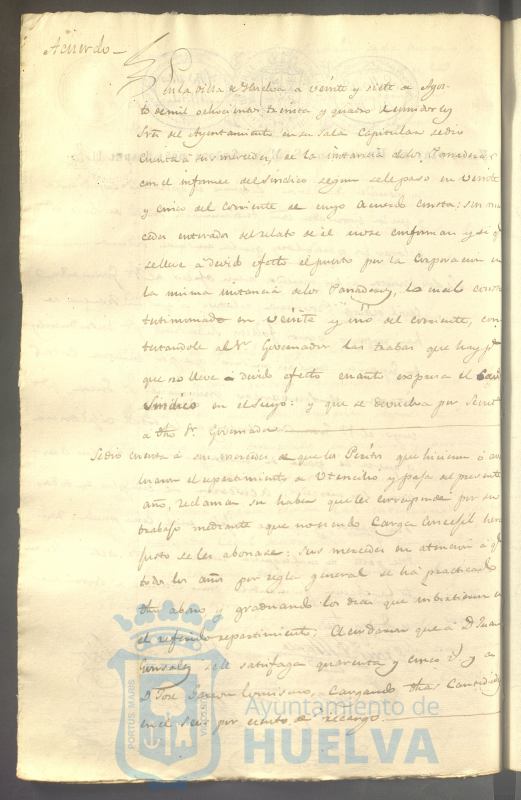 Acuerdo
En la villa de Huelva a veinte y siete de Agos-
to de mil ochocientos treinta y quatro reunidos los
Sres del Ayuntamiento en su Sala Capitular se dio
cuenta a sus mercedes, de la instancia de los Panaderos
con el informe del Sindico segun se le paso en veinte
y cinco del corriente de cuyo Acuerdo consta: sus mer
cedes enterados del relato de el no se conforman y si q
se lleve a devido efecto el puesto por la Corporacion en
la misma instancia de los Panaderos, lo cual consta
testimoniado en veinte y uno del corriente, con
testandole al Sr Governador las trabas que hay pa
que no lleve a devido efecto cuanto expresa el
Sindico en el suyo: y que se devuelva por Secret
a dho Sr Governador
Se dio cuenta a sus mercedes de que los Peritos que hicieron
el repartimiento de Utencilio y paja del presente
año, reclaman su haber que les corresponde por su
trabajo mediante que no siendo Carga Concejil
justo se les abonase: Sus mercedes en atencion a q
todos los años por regla general se ha practicado
dho abono y graduando los dias que
el referido repartimiento; Acordaron que a D Juan
Gonzalez se le satisfagan quarenta y cinco rs y a
D Jose, cargando dhas Cantidades
en el seis por ciento de recargo.
PORTUS MARIS
Ayuntamiento de
HUELVA